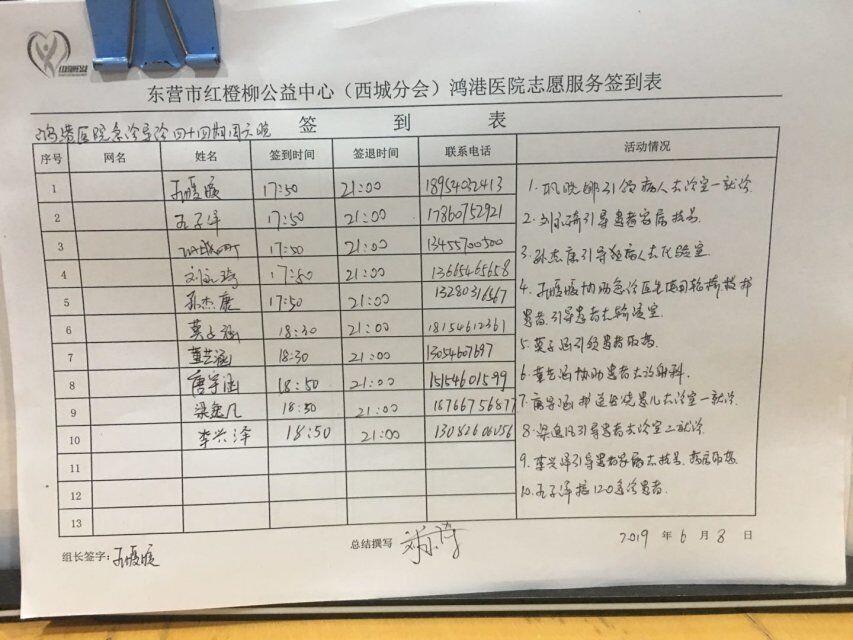 东营市红橙柳公益中心（西城分会）鸿港医院志愿服务签到表
签 到 表
鸿港医院急诊导诊四十四期周六晚
序号 网名 姓名 签到时间 签退时间 联系电话 活动情况
1 孔媛媛 17:50 21:00 18954032413
2 孔子泽 17:50 21:00 17860752921
3 巩晓娜 17:50 21:00 13455700500
4 刘永琦 17:50 21:00 13665465658
5 孙杰康 17:50 21:00 13280316567
6 莫子涵 18:30 21:00 18154612361
7 董艺涵 18:30 21:00 13054607697
8 唐宇涵 18:50 21:00 15154601599
9 梁逸凡 18:50 21:00 18766756877
10 李兴泽 18:50 21:00 13082606056
11
12
13
1. 巩晓娜引领病人去诊室一就诊.
2. 刘永琦引导患者家属挂号
3. 孙杰康引导病人去化验室.
4. 孔媛媛协助急诊医生使用轮椅接扶
患者.引导患者去输液室.
5. 莫子涵引领患者取药.
6. 董艺涵协助患者去放射科.
7. 唐宇涵护送发烧患儿去诊室一就诊.
8. 梁逸凡引导患者去诊室二就诊.
9. 李兴泽引导患者家属去挂号.药房取药.
10. 孔子泽接120急诊患者.
组长签字: 孔媛媛
总结撰写
2019 年 6 月 8 日